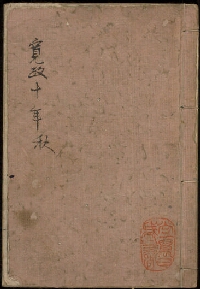 寛政十年秋